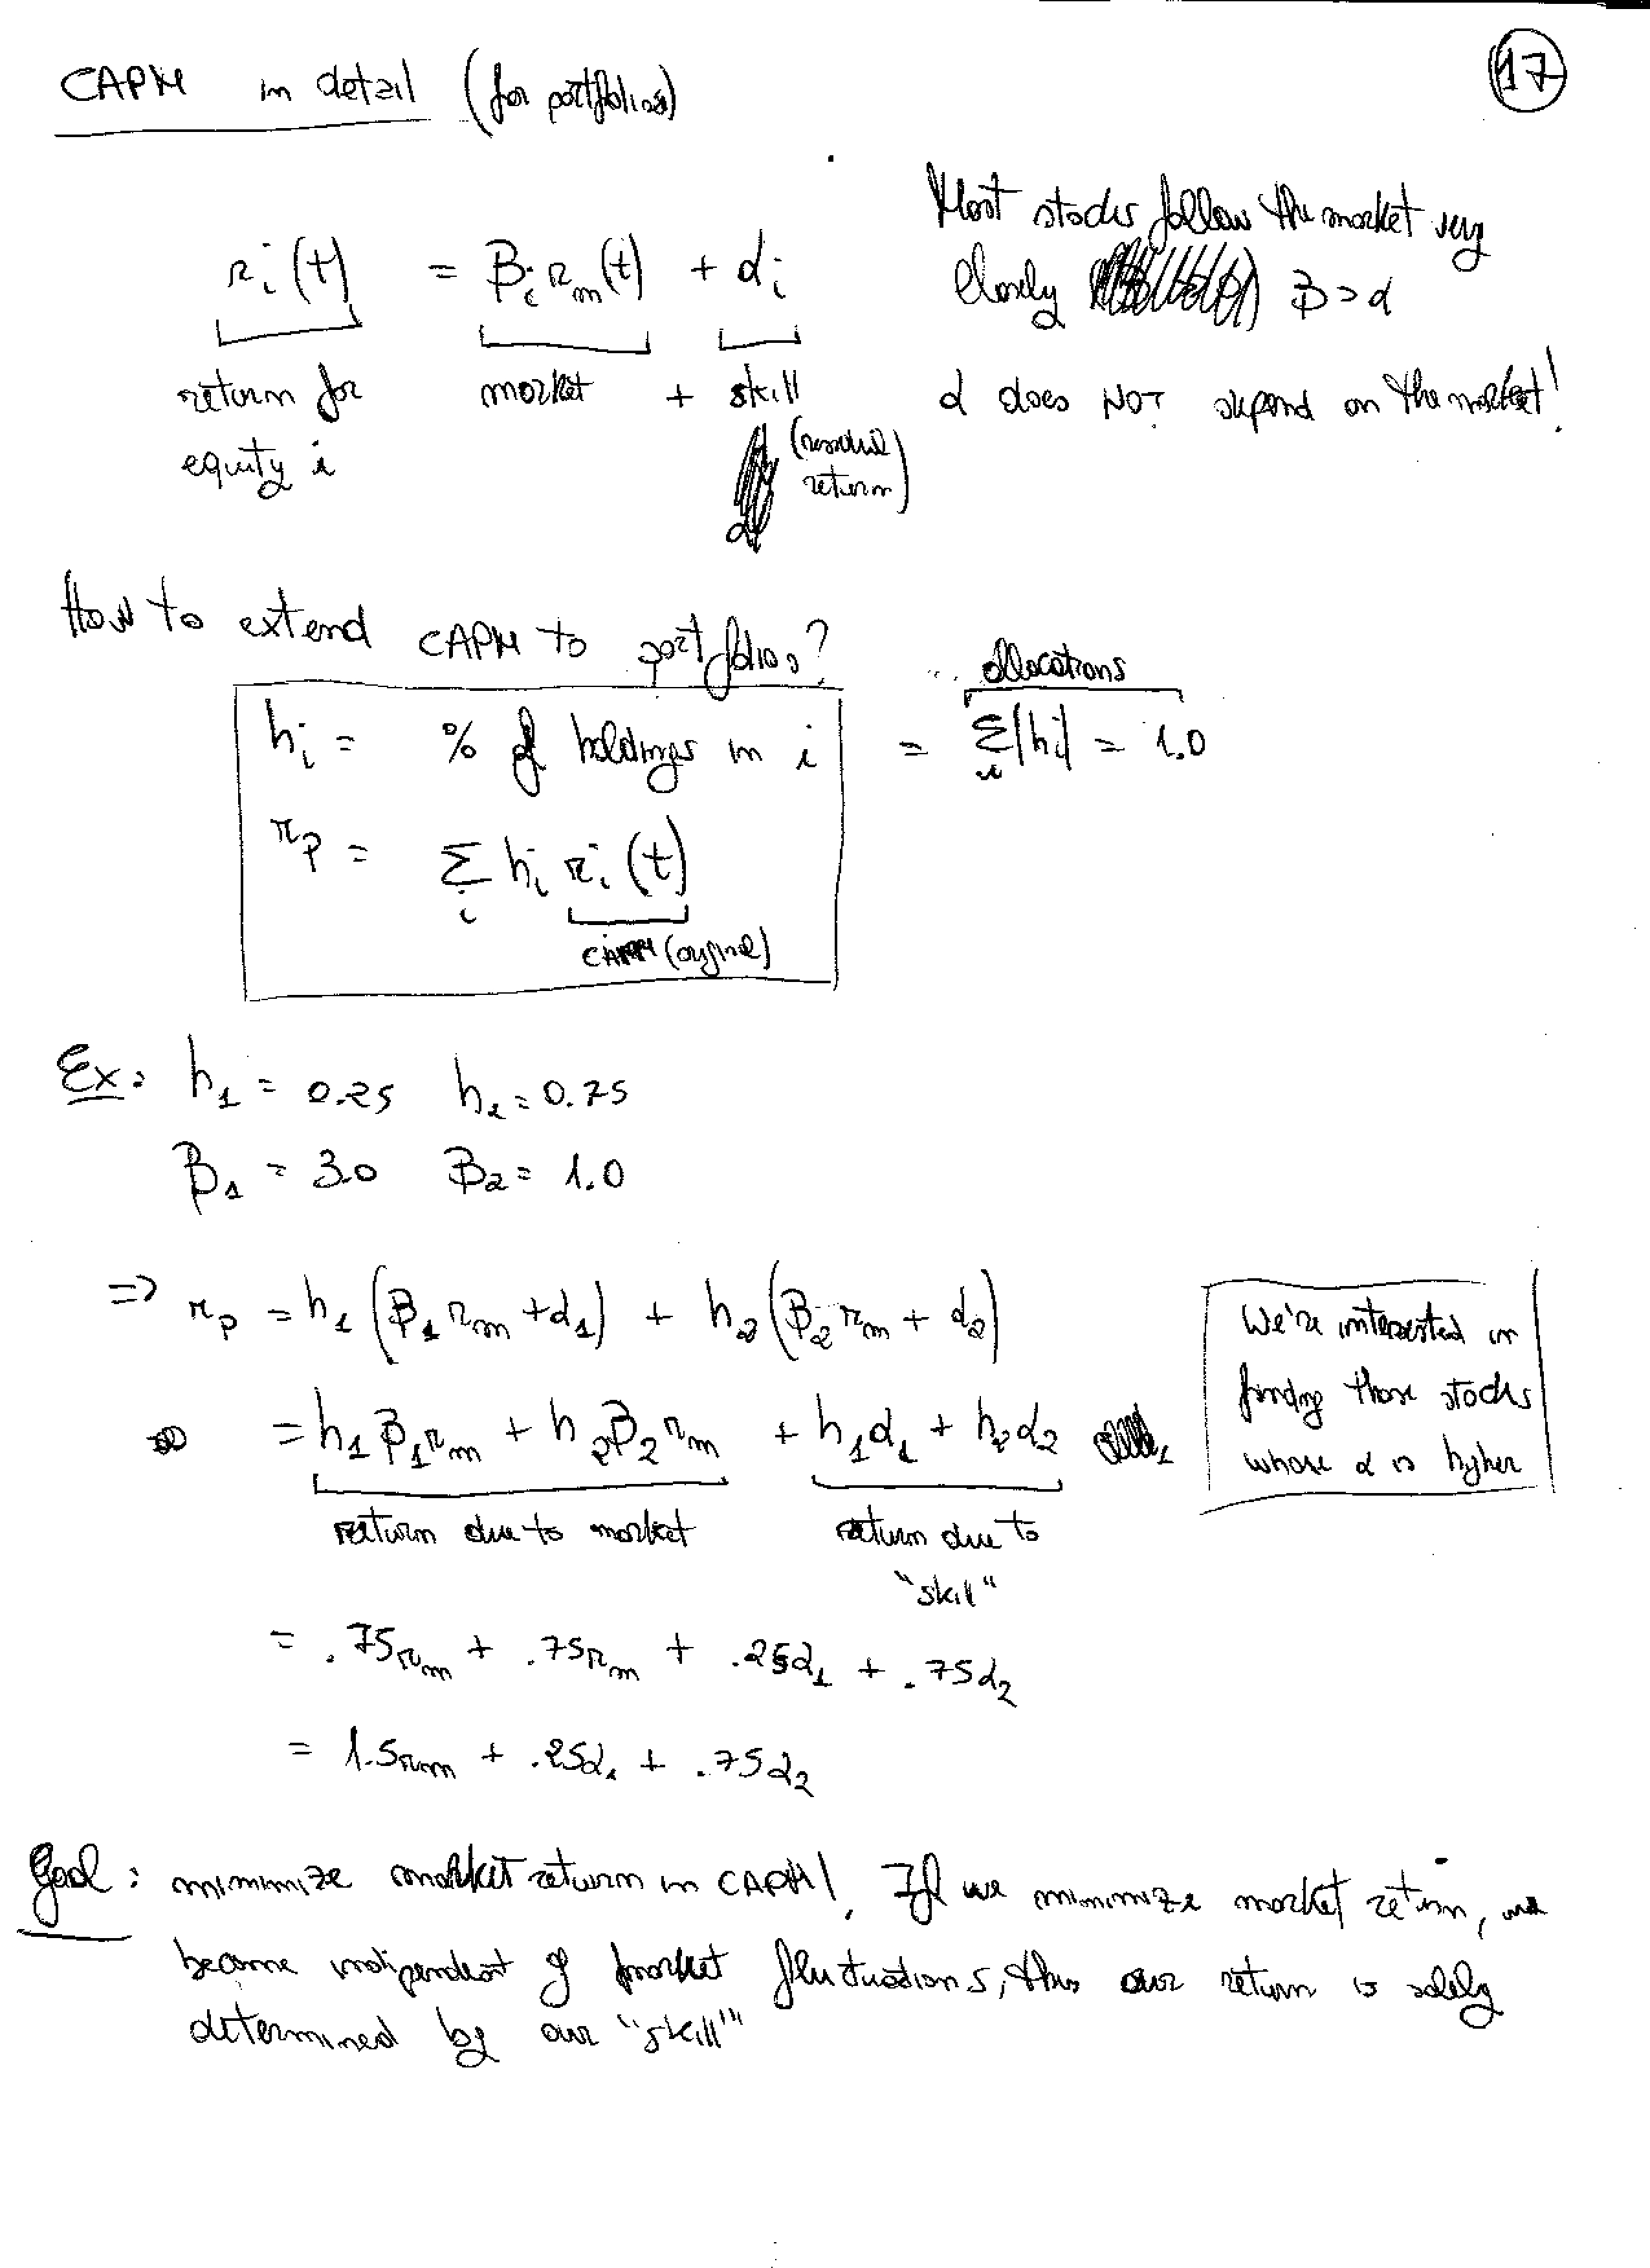 17
CAPM in detail (for portfolios)
ri(t) = βi rm(t) + αi
return for equity i
market + skill
(residual return)
Most stocks follow the market very
closely β > α
α does NOT depend on the market!
How to extend CAPM to portfolios?
hi = % of holdings in i = Σi |hi| = 1.0
allocations
rp = Σi hi ri(t)
CAPM (original)
Ex: h1 = 0.25 h2 = 0.75
β1 = 3.0 β2 = 1.0
=> rp = h1 (β1 rm + α1) + h2 (β2 rm + α2)
= h1 β1 rm + h2 β2 rm + h1 α1 + h2 α2
return due to market
return due to
"skill"
We're interested in
finding those stocks
whose α is higher
= .75rm + .75rm + .25α1 + .75α2
= 1.5rm + .25α1 + .75α2
Goal: minimize market return in CAPM! If we minimize market return, we
become indipendent of market fluctuations, thus our return is solely
determined by our "skill"